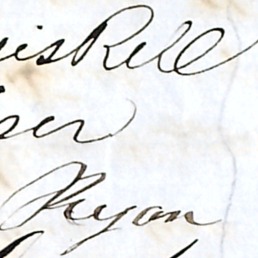 uis Rell
ser
Ryan